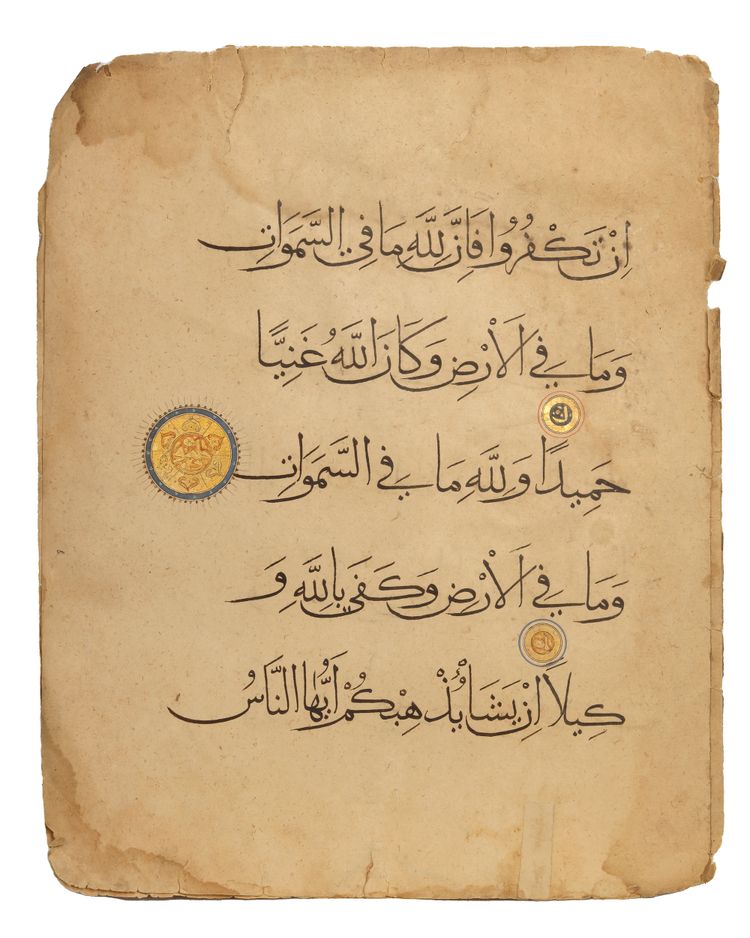 اِنْ تَكْفُرُوا فَاِنَّ لِلَّهِ مَا فِي السَّمَوَاتِ
وَمَا فِي الْاَرْضِ وَكَانَ اللَّهُ غَنِيًّا
حَمِيدًا وَلِلَّهِ مَا فِي السَّمَوَاتِ
وَمَا فِي الْاَرْضِ وَكَفَى بِاللَّهِ وَ
كِيلاً اِنْ يَشَأْ يُذْهِبْكُمْ اَيُّهَا النَّاسُ